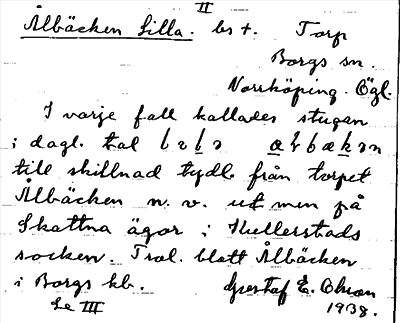 II
Ålbäcken Lilla. bs +. Torp
Borgs sn.
Norrköping. Ögl.
I varje fall kallades stugan
i dagl. tal
till skillnad tydl. från torpet
Ålbäcken n. v. ut men på
Skattna ägor i Kullerstads
socken. Trol. blott Ålbäcken
i Borgs kb. Gustaf E. Olsson
Se III 1938.